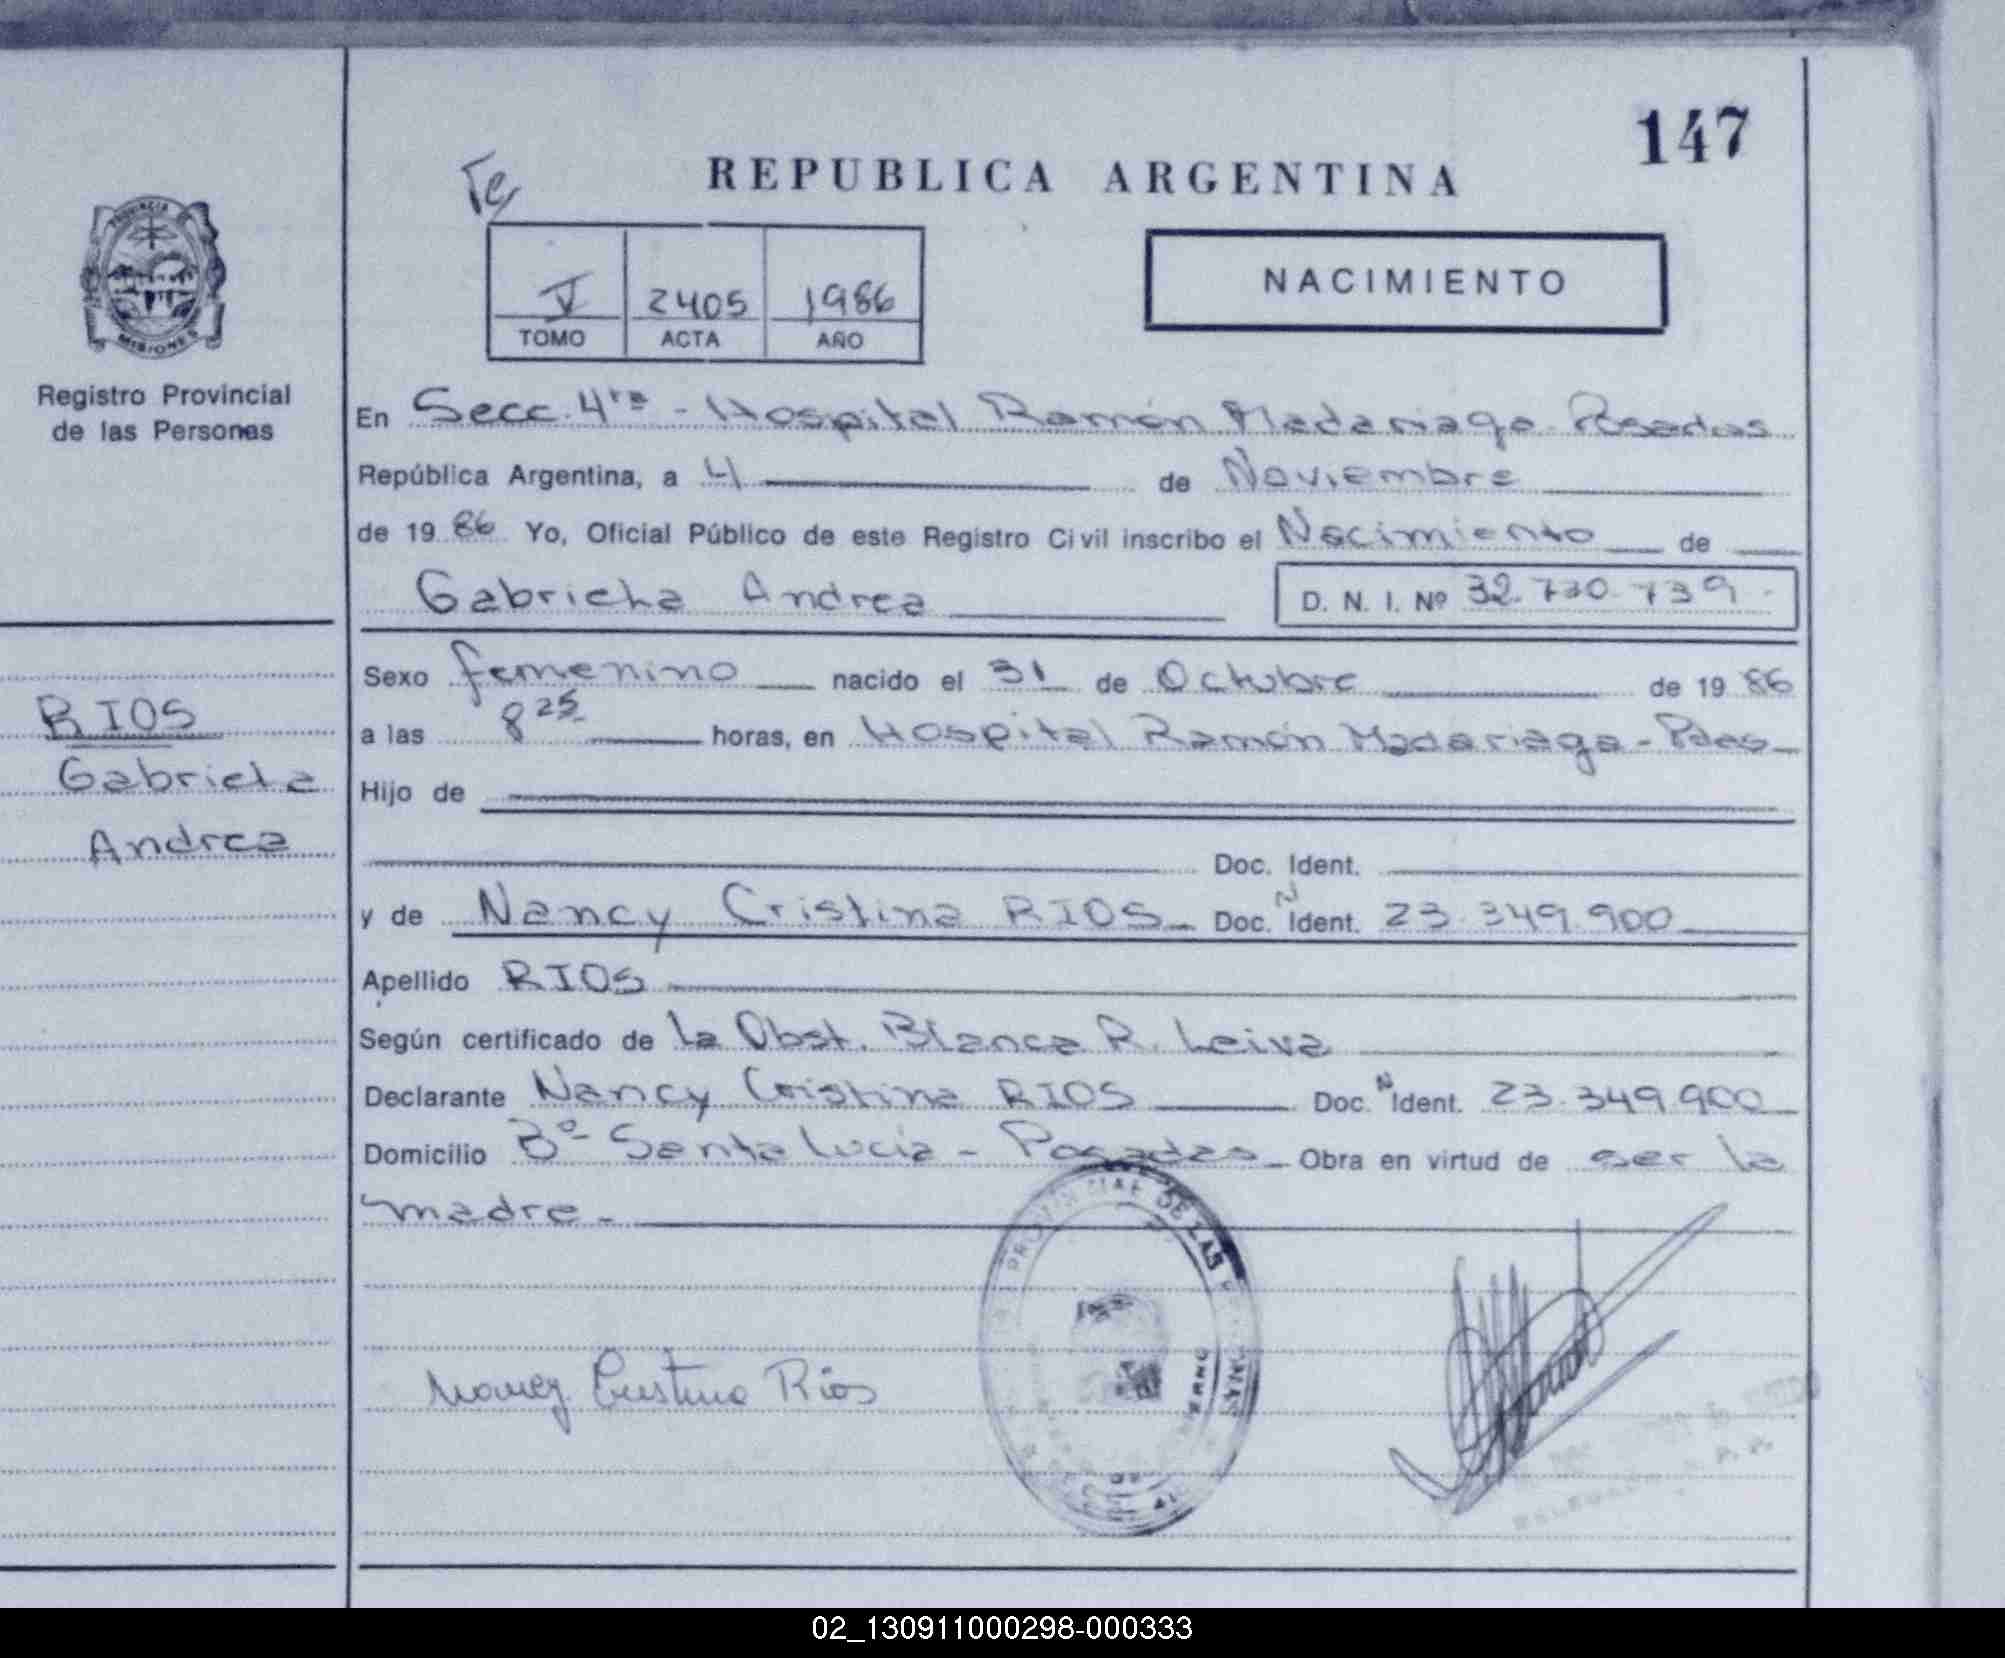 147
REPUBLICA ARGENTINA
NACIMIENTO
V 2405 1986
TOMO ACTA AÑO
PROVINCIA DE
MISIONES
Registro Provincial
de las Personas
En Secc. 4ta - Hospital Ramón Madariaga Posadas
República Argentina, a 4 de Noviembre
de 19 86 Yo, Oficial Público de este Registro Civil inscribo el Nacimiento de
Gabriela Andrea D. N. I. Nº 32.730.739.
Sexo femenino nacido el 31 de Octubre de 19 86
a las 8 25 horas, en Hospital Ramón Madariaga - Pdas
Hijo de
Doc. Ident.
y de Nancy Cristina RIOS Doc. N Ident. 23.349.900
Apellido RIOS
Según certificado de la Obst. Blanca R. Leiva
Declarante Nancy Cristina RIOS Doc. N Ident. 23.349.900
Domicilio Bº Santa Lucía - Posadas Obra en virtud de ser la
madre.
RIOS
Gabriela
Andrea
PROVINCIAL DE LAS
Nancy Cristina Rios
02_130911000298-000333